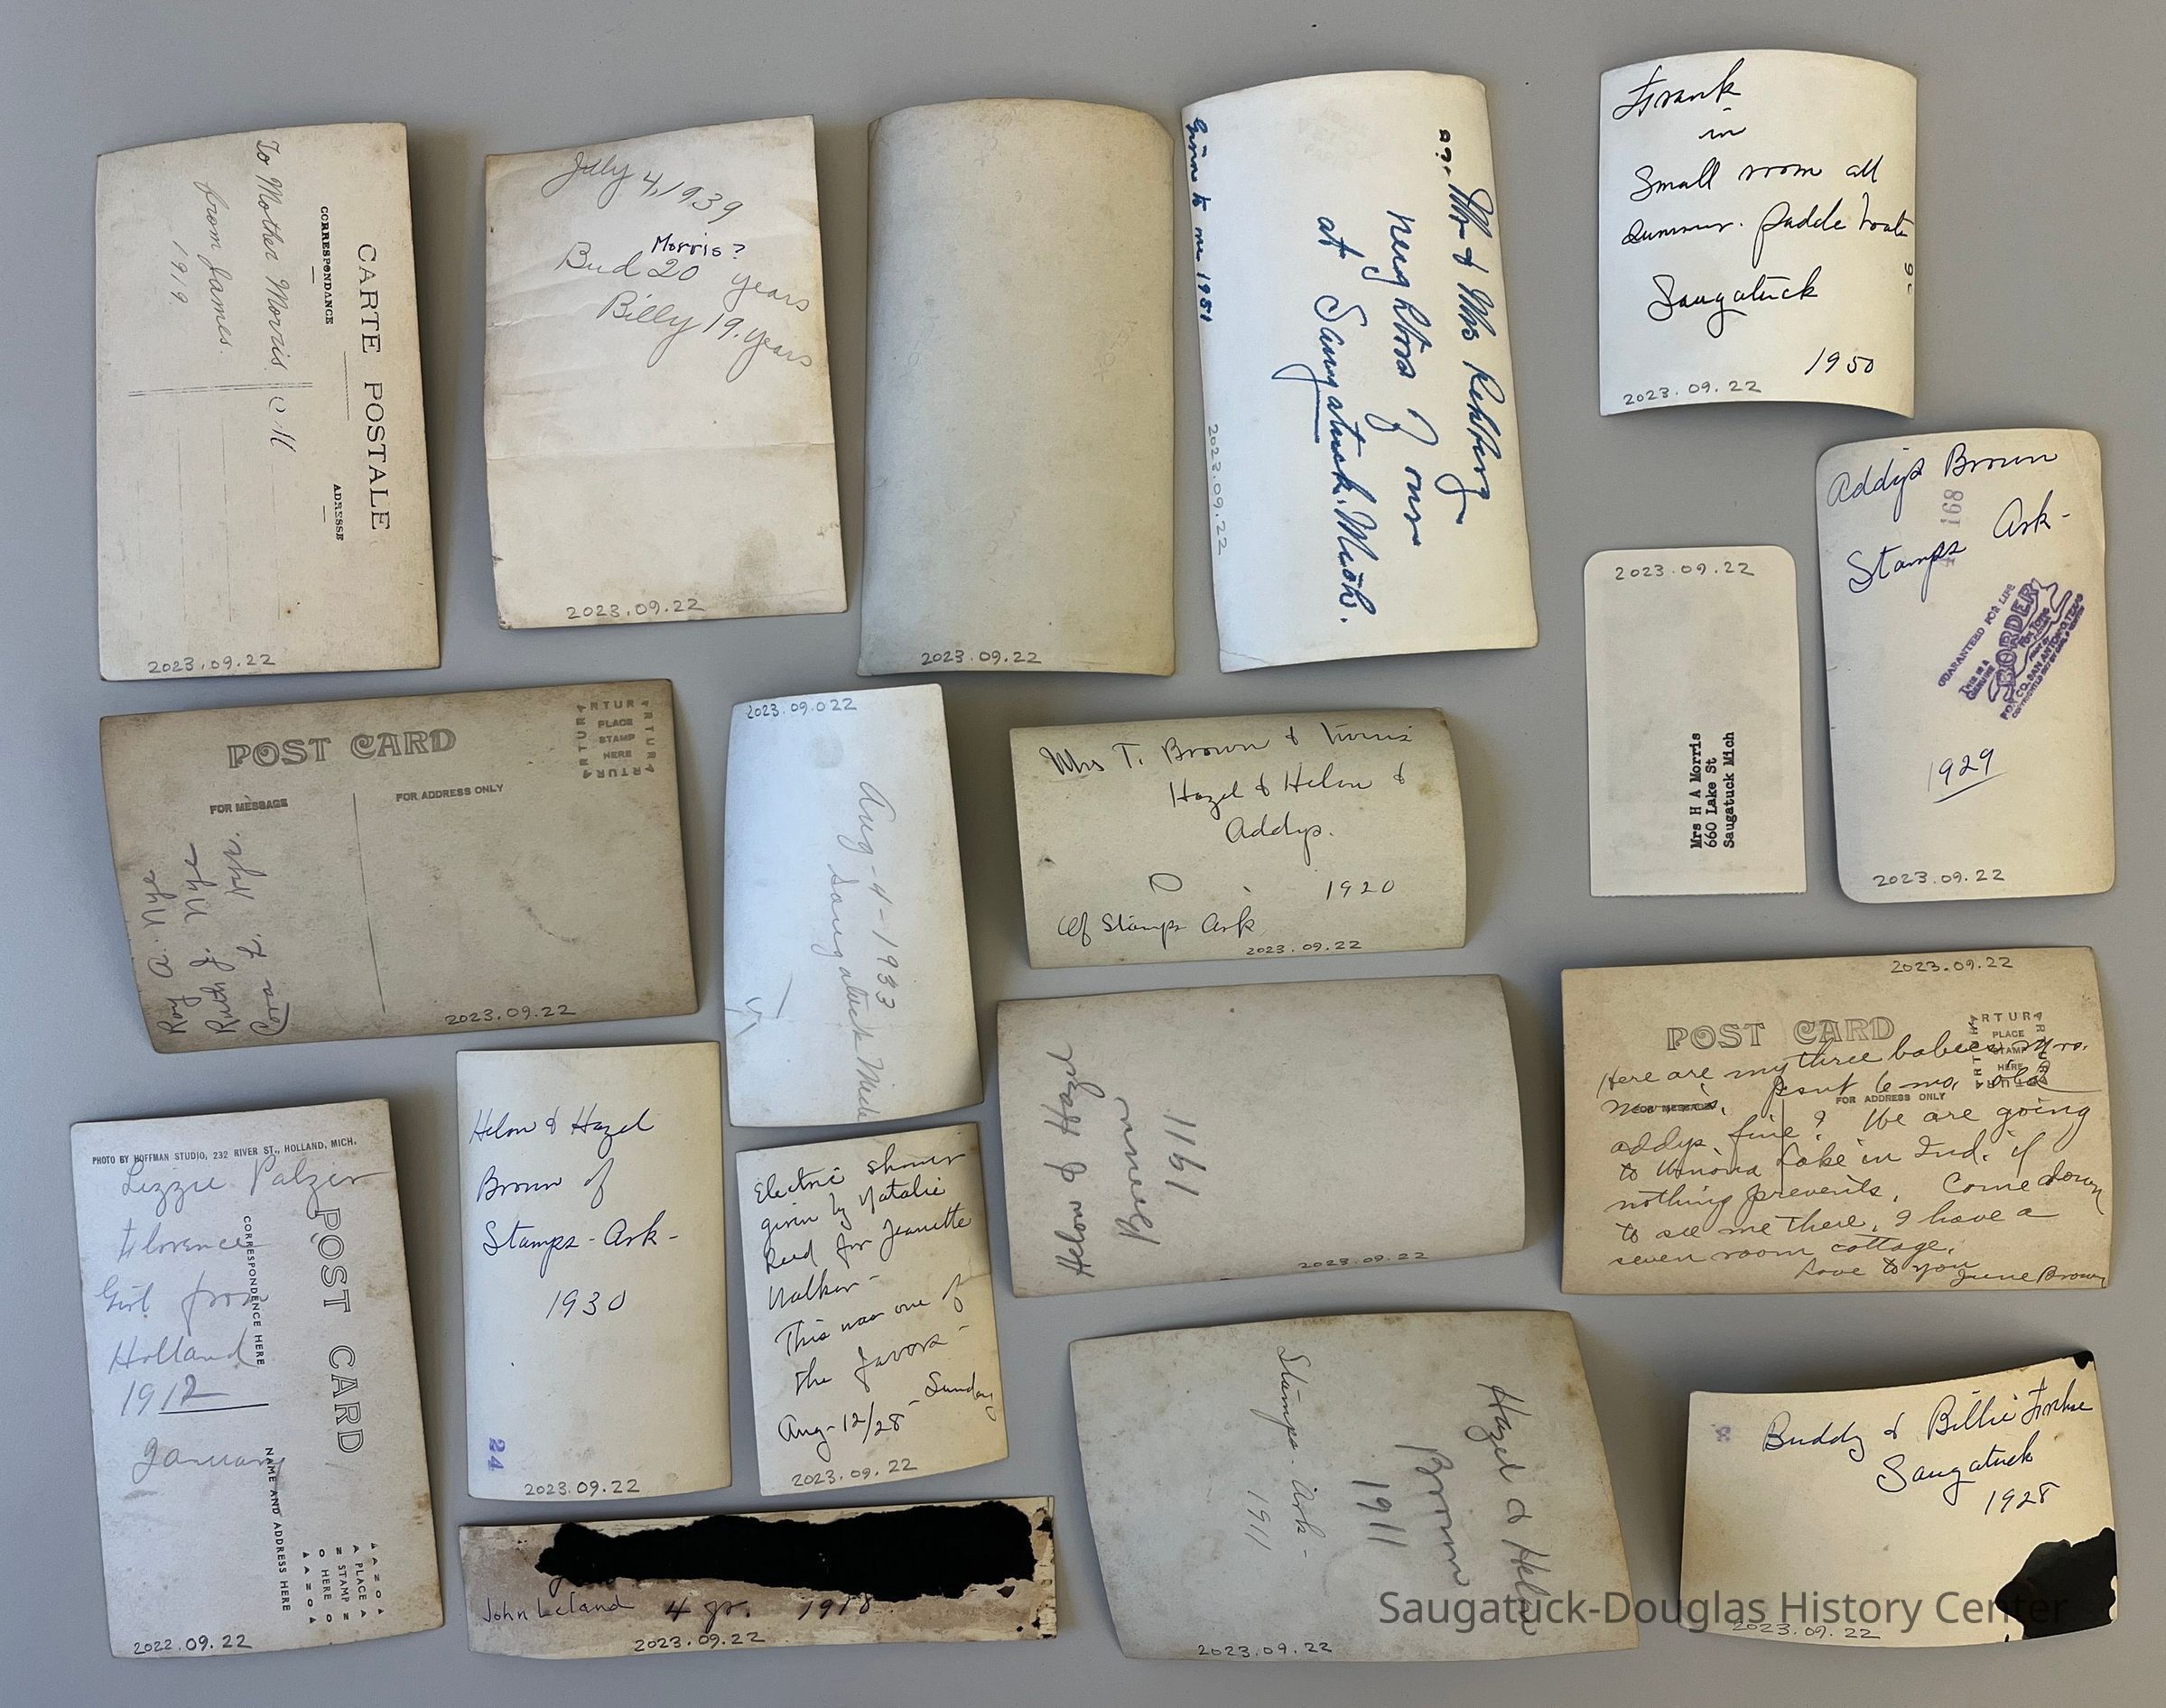 CARTE POSTALE
CORRESPONDANCE
ADRESSE
To Mother Morris
from James.
1919
2023.09.22
July 4, 1939
Morris?
Bud 20 years
Billy 19. years
2023.09.22
2023.09.22
Mr & Mrs Rehberg
neighbors of ours
at Saugatuck. Mich.
Given to me 1981
2023.09.22
Frank
in
Small room all
summer. padde boats
Saugatuck
1950
2023.09.22
Addys Brown
Ark-
Stamps
168
GUARANTEED FOR LIFE
THIS IS A
GENUINE
BORDER
FOX TONE
FOX CO. SAN ANTONIO TEXAS
1929
2023.09.22
2023.09.22
Mrs H A Morris
660 Lake St
Saugatuck Mich
POST CARD
PLACE
STAMP
HERE
FOR MESSAGE
FOR ADDRESS ONLY
Ruth
Roy
2023.09.22
2023.09.022
Aug-4-1933
Saugatuck Mich
Mrs T. Brown & twins
Hazel & Helen &
Addys.
1920
Of Stamps Ark
2023.09.22
2023.09.22
POST CARD
PLACE
STAMP
HERE
FOR MESSAGE
FOR ADDRESS ONLY
Here are my three babies Mrs.
Morris. Isn't 6 mo. old
addys fine? We are going
to Winona Lake in Ind. if
nothing prevents. Come down
to see me there. I have a
seven room cottage.
Love to you
June Brown
Helen & Hazel
Brown
1911
2023.09.22
PHOTO BY HOFFMAN STUDIO, 232 RIVER ST., HOLLAND, MICH.
POST CARD
CORRESPONDENCE HERE
NAME AND ADDRESS HERE
PLACE
STAMP
HERE
Lizzie Palzer
Florence
Girl from
Holland
1912
January
2022.09.22
Helen & Hazel
Brown of
Stamps-Ark-
1930
24
2023.09.22
Electric shower
given by Natalie
Reed for Jeanette
Walker-
This was one of
the favors-
Sunday
Aug-12/28
2023.09.22
John Leland 4 yr. 1918
2023.09.22
Hazel & Helen
Brown
1911
Stamps-Ark-
1911
2023.09.22
Buddy & Billie
Saugatuck
1928
2023.09.22
Saugatuck-Douglas History Center